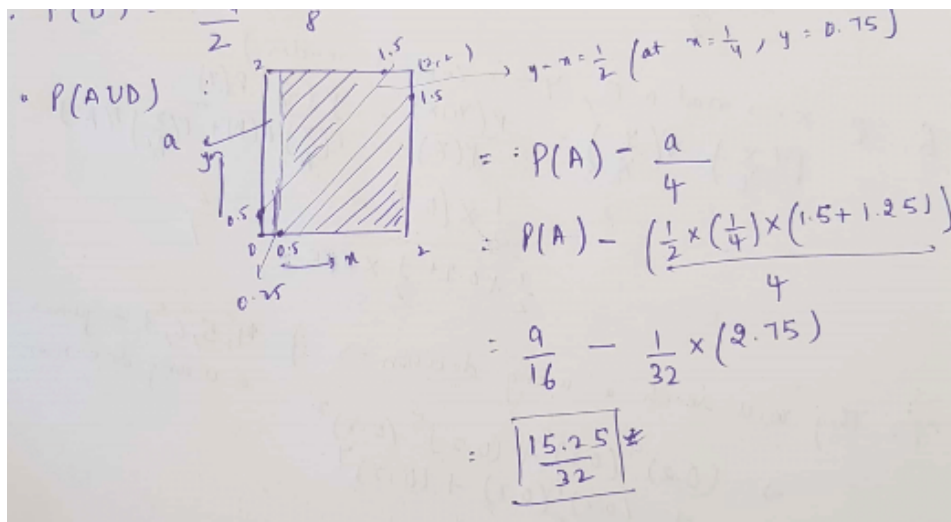 2 8
• P(AUD) :
2 1.5 (2,2) → y - x = 1/2 (at x = 1/4, y = 0.75)
1.5
a
y
0.5
0 0.5 → x 2
0.25
= P(A) - a/4
= P(A) - (1/2 × (1/4) × (1.5 + 1.25))/4
= 9/16 - 1/32 × (2.75)
= 15.25/32